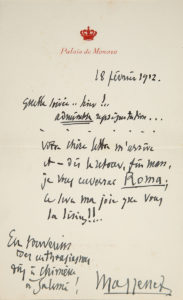 Palais de Monaco
18 février 1912.
Quelle soirée... hier!..
admirable représentation...
votre chère lettre m'arrive
et - dès le retour, fin mars,
je vous enverrai Roma;
ce sera ma joie que vous
la lisiez!!..
En souvenirs
à Salomé!
Massenet